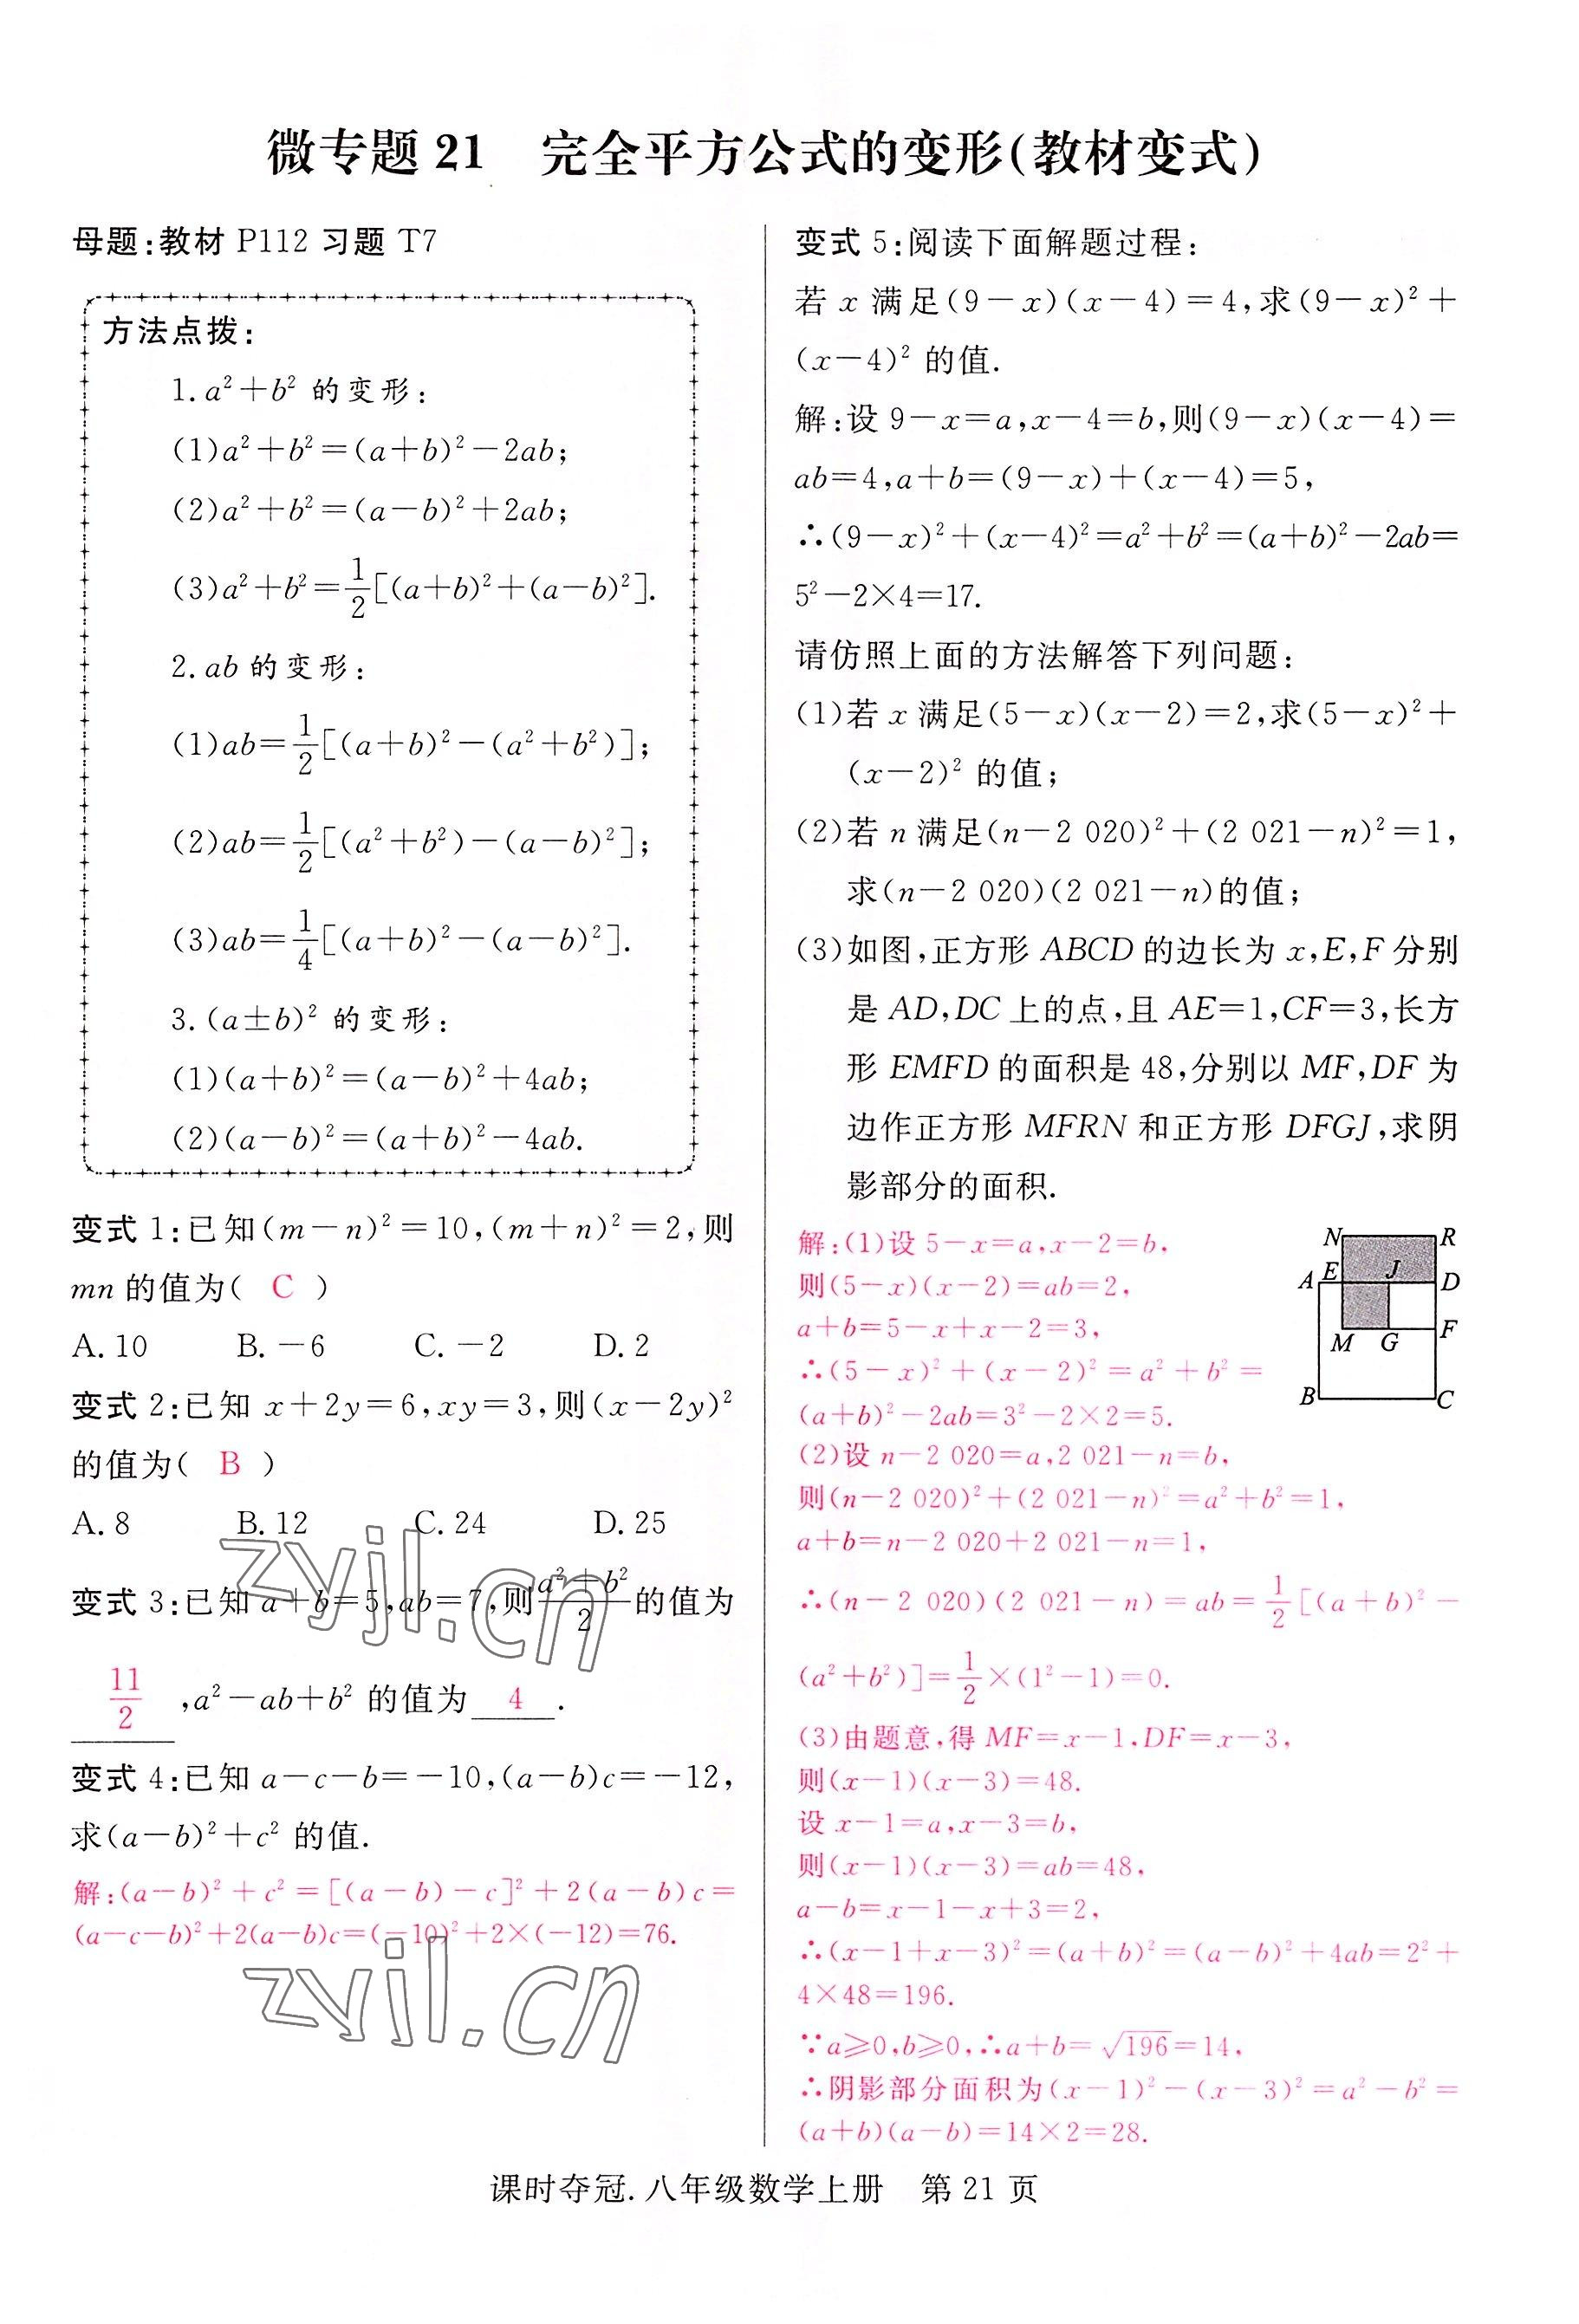 微专题 21　完全平方公式的变形(教材变式)
母题:教材 P112 习题 T7
方法点拨:
1. a²+b² 的变形:
(1)a²+b²=(a+b)²-2ab;
(2)a²+b²=(a-b)²+2ab;
(3)a²+b²=1/2[(a+b)²+(a-b)²].
2. ab 的变形:
(1)ab=1/2[(a+b)²-(a²+b²)];
(2)ab=1/2[(a²+b²)-(a-b)²];
(3)ab=1/4[(a+b)²-(a-b)²].
3. (a±b)² 的变形:
(1)(a+b)²=(a-b)²+4ab;
(2)(a-b)²=(a+b)²-4ab.
变式 1:已知(m-n)²=10,(m+n)²=2,则
mn 的值为( C )
A. 10 B. -6 C. -2 D. 2
变式 2:已知 x+2y=6,xy=3,则(x-2y)²
的值为( B )
A. 8 B. 12 C. 24 D. 25
变式 3:已知 a+b=5,ab=7,则(a²+b²)/2 的值为
11/2 ,a²-ab+b² 的值为 4 .
变式 4:已知 a-c-b=-10,(a-b)c=-12,
求(a-b)²+c² 的值.
解:(a-b)²+c²=[(a-b)-c]²+2(a-b)c=
(a-c-b)²+2(a-b)c=(-10)²+2×(-12)=76.
zyjl.cn
zyjl.cn
变式 5:阅读下面解题过程:
若 x 满足(9-x)(x-4)=4,求(9-x)²+
(x-4)² 的值.
解:设 9-x=a,x-4=b,则(9-x)(x-4)=
ab=4,a+b=(9-x)+(x-4)=5,
∴(9-x)²+(x-4)²=a²+b²=(a+b)²-2ab=
5²-2×4=17.
请仿照上面的方法解答下列问题:
(1)若 x 满足(5-x)(x-2)=2,求(5-x)²+
(x-2)² 的值;
(2)若 n 满足(n-2 020)²+(2 021-n)²=1,
求(n-2 020)(2 021-n)的值;
(3)如图,正方形 ABCD 的边长为 x,E,F 分别
是 AD,DC 上的点,且 AE=1,CF=3,长方
形 EMFD 的面积是 48,分别以 MF,DF 为
边作正方形 MFRN 和正方形 DFGJ,求阴
影部分的面积.
解:(1)设 5-x=a,x-2=b,
则(5-x)(x-2)=ab=2,
a+b=5-x+x-2=3,
∴(5-x)²+(x-2)²=a²+b²=
(a+b)²-2ab=3²-2×2=5.
N R
A E J D
M G F
B C
(2)设 n-2 020=a,2 021-n=b,
则(n-2 020)²+(2 021-n)²=a²+b²=1,
a+b=n-2 020+2 021-n=1,
∴(n-2 020)(2 021-n)=ab=1/2[(a+b)²-
(a²+b²)]=1/2×(1²-1)=0.
(3)由题意,得 MF=x-1,DF=x-3,
则(x-1)(x-3)=48.
设 x-1=a,x-3=b,
则(x-1)(x-3)=ab=48,
a-b=x-1-x+3=2,
∴(x-1+x-3)²=(a+b)²=(a-b)²+4ab=2²+
4×48=196.
∵a⩾0,b⩾0,∴a+b=√196=14,
∴阴影部分面积为(x-1)²-(x-3)²=a²-b²=
(a+b)(a-b)=14×2=28.
课时夺冠.八年级数学上册　第 21 页